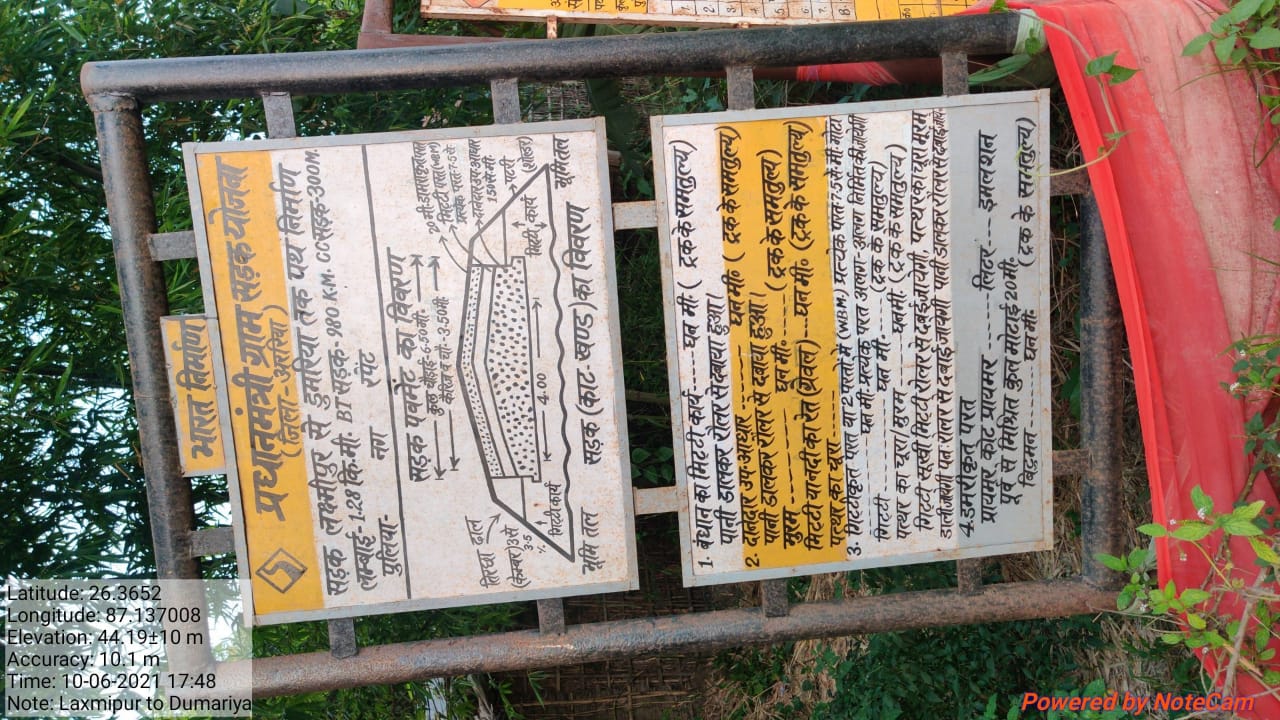 भारत निर्माण
प्रधानमंत्री ग्राम सड़क योजना
(जिला- अररिया)
सड़क लक्ष्मीपुर से डुमरिया तक पथ निर्माण
लम्बाई- 1.28 कि.मी. BT सड़क- .980 KM. CC सड़क-300M.
पुलिया- नग स्पेंट
सड़क पेवमेंट का विवरण
कुल चौड़ाई- 6.50 मी.
कैरेज वे चौ.- 3.50 मी
तिरछा ढाल
(कैम्बर) 3 से
3.5
%
20 मी. डामरीकृत परत
गिट्टी परत (WBM)
प्रत्येक परत-7.5 से.
दानेदार उप आधार
150 से मी.
पटरी
(शोल्डर)
मिट्टी कार्य
मिट्टी कार्य
4.00
भूमि तल
भूमि तल
सड़क (काट खण्ड) का विवरण
1. बंधान का मिटटी कार्य ------ घन मी. ( ट्रक के समतुल्य)
पानी डालकर रोलर से दबाया हुआ।
2. दानेदार उप-आधार ------ घन मी॰ ( ट्रक के समतुल्य)
पानी डालकर रोलर से दबाया हुआ।
मुरुम ------ घन मी. ------ ( ट्रक के समतुल्य)
मिटटी या नदी का रेत (ग्रेवल) ---घन मी॰ (ट्रक के समतुल्य)
पत्थर का चूरा
3. गिटटीकृत परत या 2 परतो में (WBM) प्रत्येक परत-7.5 से. मी. मोटा
------घन मी. प्रत्येक परत अलग अलग निर्मित की जायेगी
गिटटी ------ घन मी. ------ (ट्रक के समतुल्य)
पत्थर का चूरा/ मुरम ------ घन मी. (ट्रक के समतुल्य)
गिटटी सूखी गिटटी रोलर से दबाई जायेगी, पत्थर का चूरा मुरम
डाली जायेगी एवं रोलर से दबाई जायेगी पानी डालकर रोलर से दबाई जायेगी
4. डामरीकृत परत
प्रायमर कोट प्रायमर ------ लिटर---- इमलशन
पूर्व से मिश्रित कुल मोटाई 20 मी॰
बिटुमन ------ घन मी. (ट्रक के समतुल्य)
Latitude: 26.3652
Longitude: 87.137008
Elevation: 44.19±10 m
Accuracy: 10.1 m
Time: 10-06-2021 17:48
Note: Laxmipur to Dumariya
Powered by NoteCam